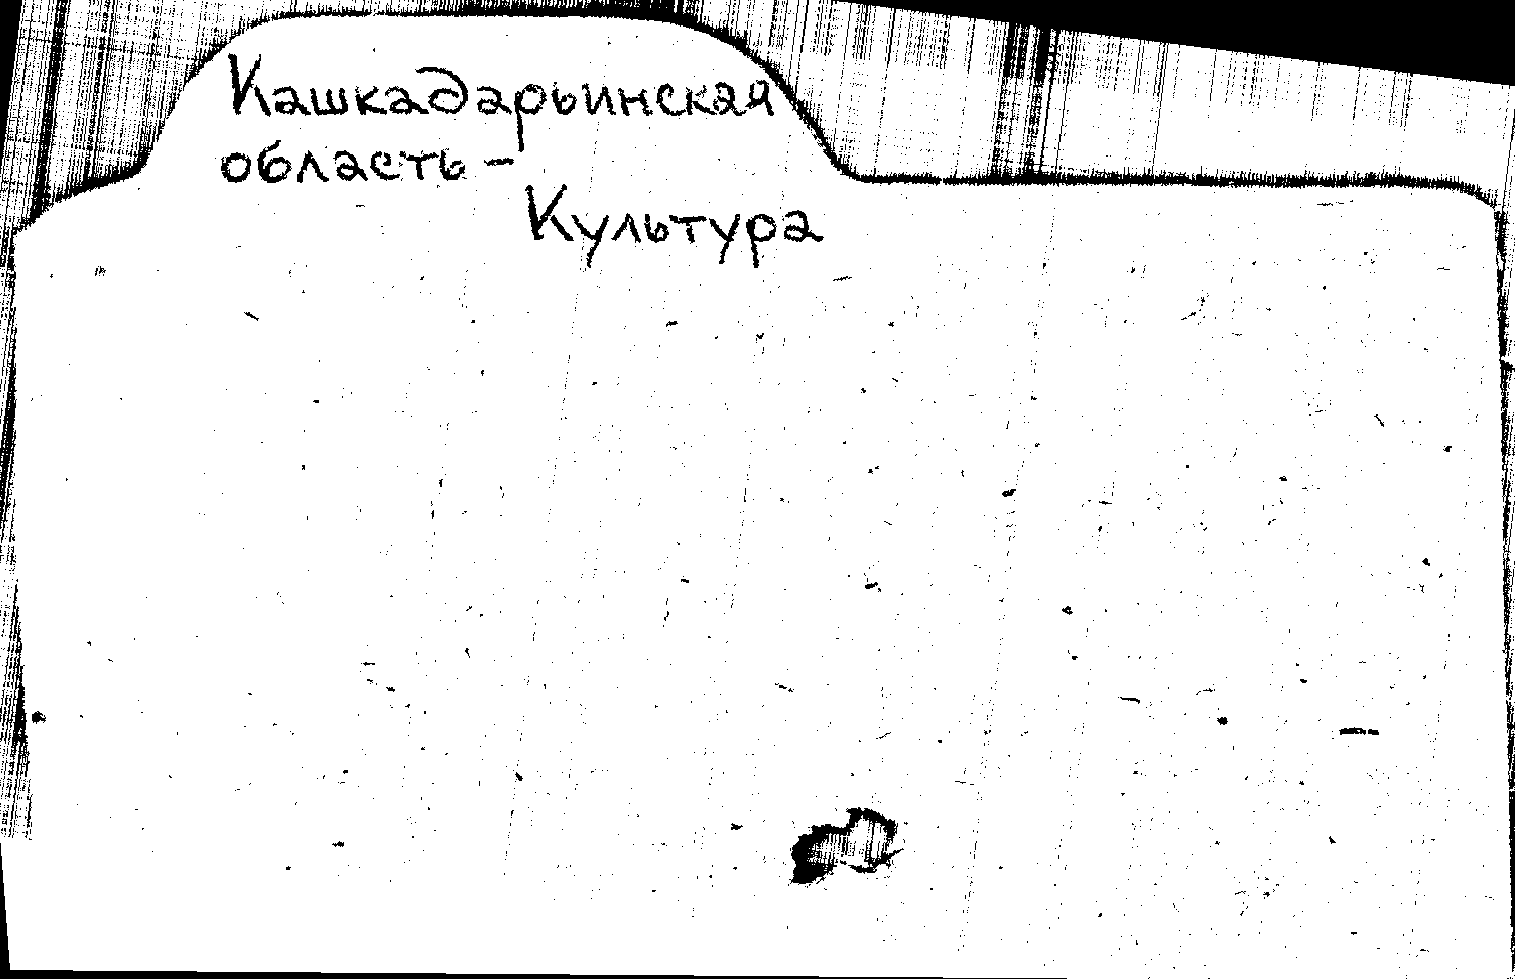 Кашкадарьинская
область -
Культура